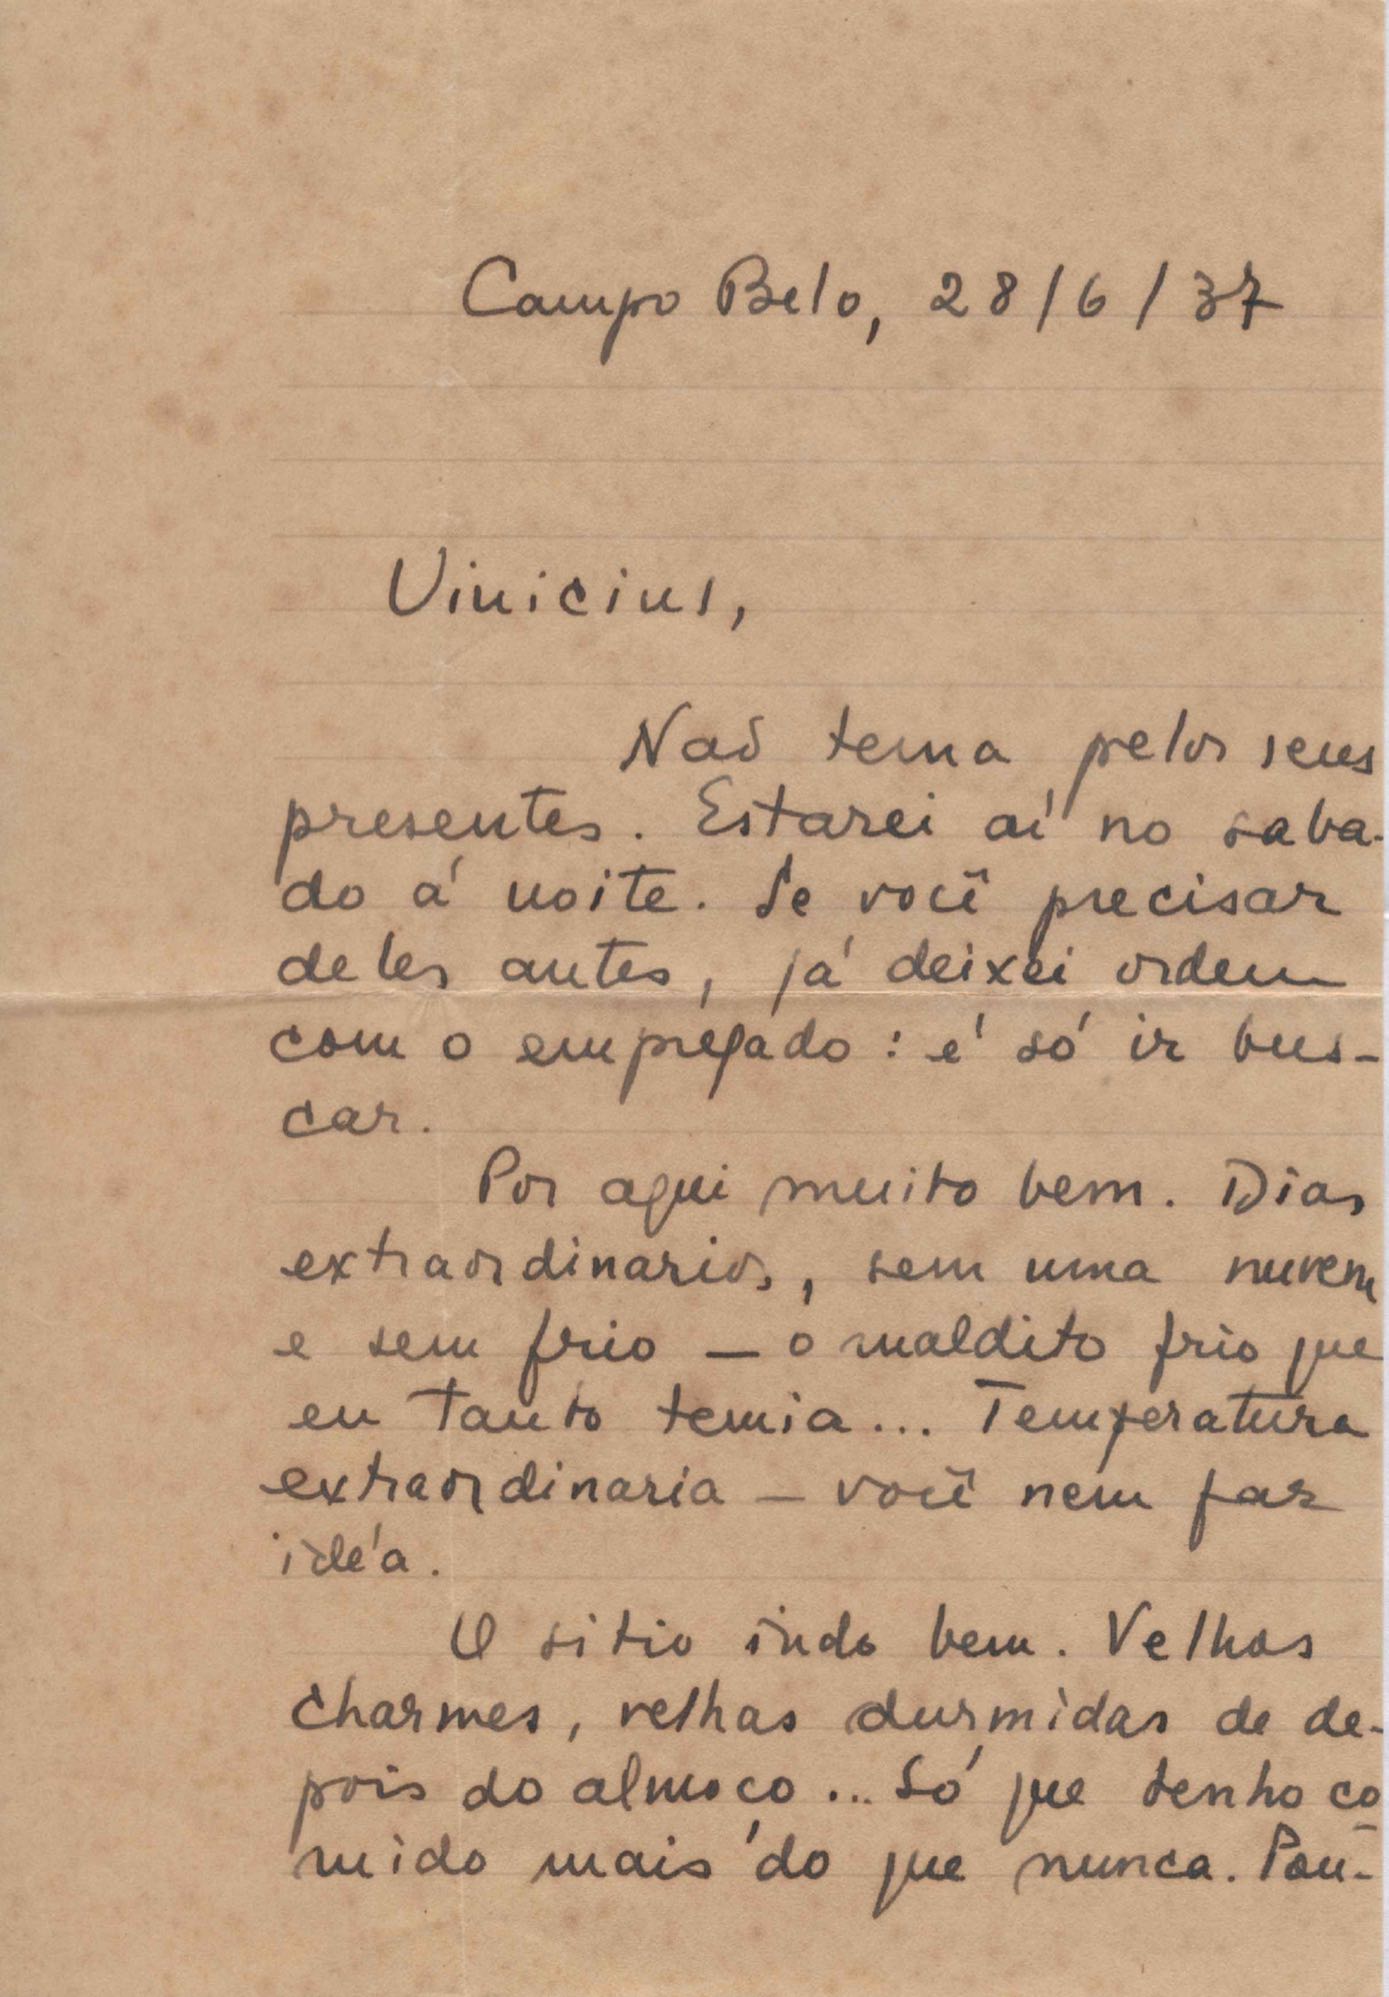 Campo Belo, 28/6/37
Vinicius,
Não tema pelos seus
presentes. Estarei aí no saba-
do á noite. Se você precisar
deles antes, já deixei ordem
com o empregado: é só ir bus-
car.
Por aqui muito bem. Dias
extraordinarios, sem uma nuvem
e sem frio — o maldito frio que
eu tanto temia... Temperatura
extraordinaria — você nem faz
idéa.
O sitio indo bem. Velhos
charmes, velhas durmidas de de-
pois do almoço... Só que tenho co-
mido mais do que nunca. Pou-